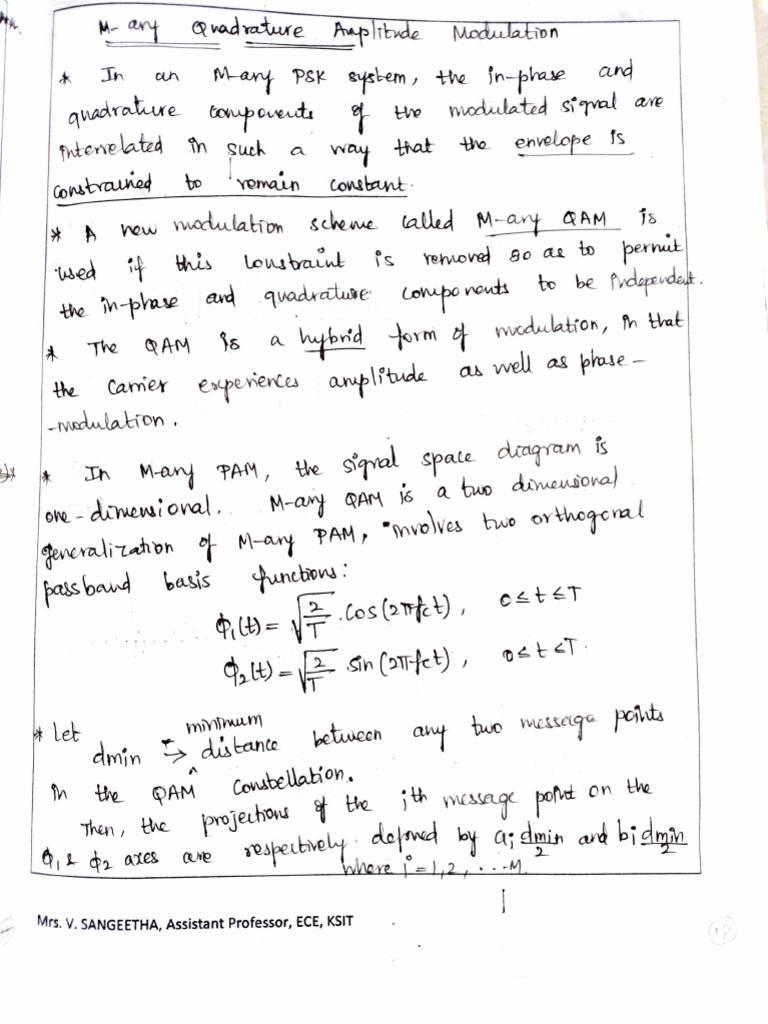 M-ary Quadrature Amplitude Modulation
* In an M-ary PSK system, the in-phase and
quadrature components of the modulated signal are
interrelated in such a way that the envelope is
constrained to remain constant.
* A new modulation scheme called M-ary QAM is
used if this constraint is removed so as to permit
the in-phase and quadrature components to be independent.
* The QAM is a hybrid form of modulation, in that
the carrier experiences amplitude as well as phase-
-modulation.
* In M-ary PAM, the signal space diagram is
one-dimensional. M-ary QAM is a two dimensional
generalization of M-ary PAM, involves two orthogonal
passband basis functions:
ϕ₁(t) = √(2/T) . cos(2πfct), 0≤t≤T
ϕ₂(t) = √(2/T) sin(2πfct), 0≤t≤T.
* Let dmin → minimum distance between any two message points
in the QAM constellation.
Then, the projections of the ith message point on the
ϕ₁ & ϕ₂ axes are respectively defined by ai dmin/2 and bi dmin/2
where i = 1,2, ...M.
Mrs. V. SANGEETHA, Assistant Professor, ECE, KSIT